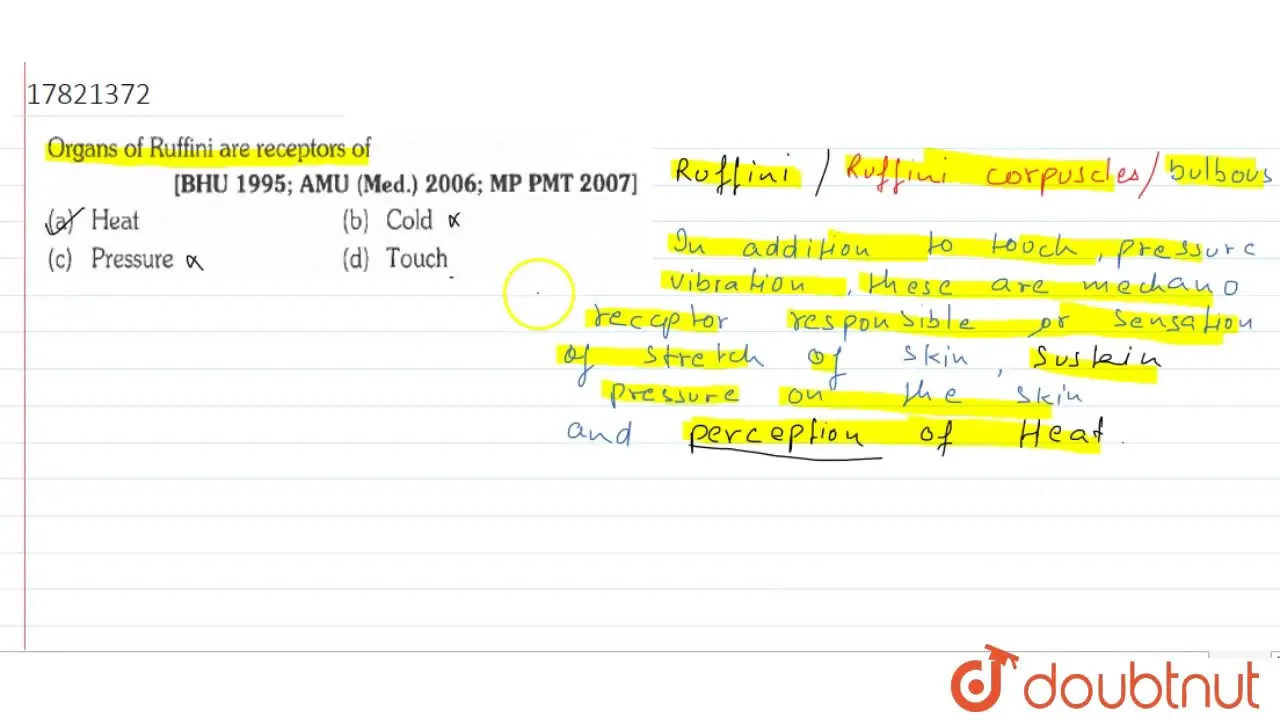 17821372
Organs of Ruffini are receptors of
[BHU 1995; AMU (Med.) 2006; MP PMT 2007]
(a) Heat (b) Cold
(c) Pressure (d) Touch
Ruffini / Ruffini corpuscles / bulbous
In addition to touch, pressure
vibration, these are mechano
receptor responsible or sensation
of stretch of skin, sustein
pressure on the skin
and perception of Heat.
doubtnut